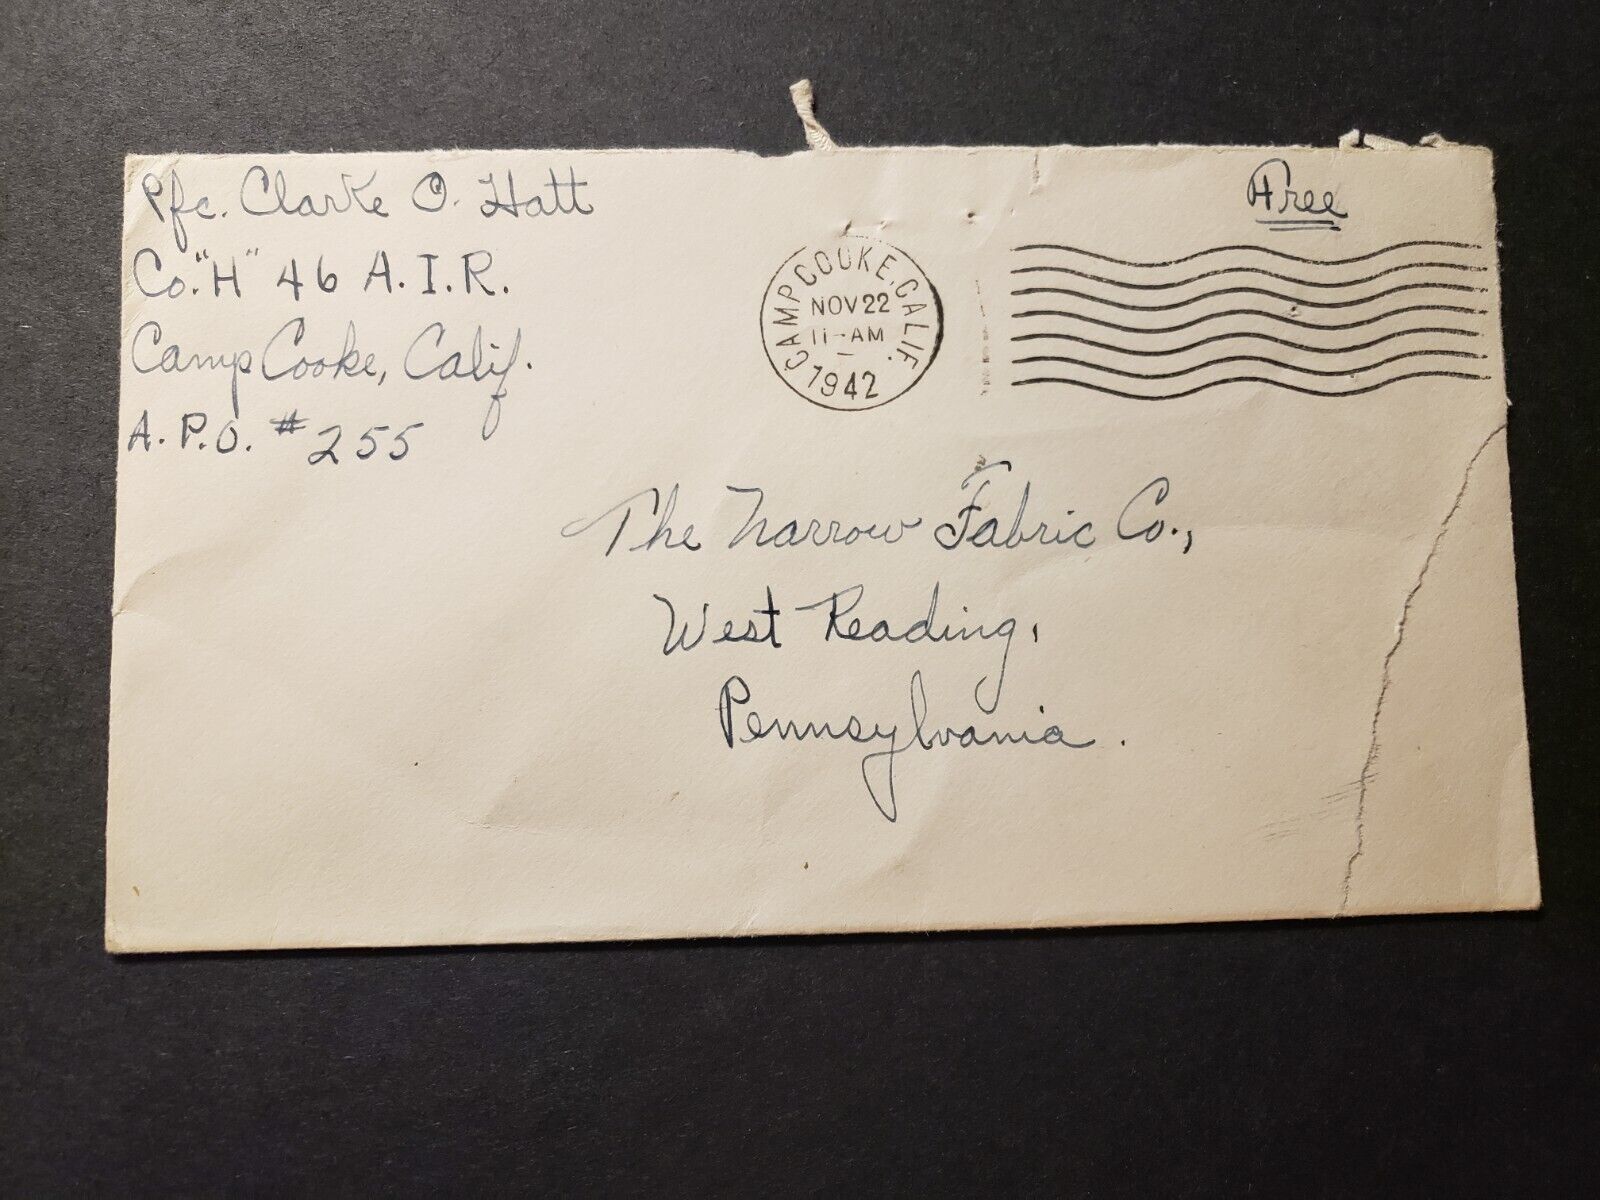 Pfc. Clarke O. Hatt
Co. "H" 46 A.I.R.
Camp Cooke, Calif.
A.P.O. # 255
Free
CAMP COOKE, CALIF.
NOV 22
11-AM
1942
The Narrow Fabric Co.,
West Reading,
Pennsylvania.